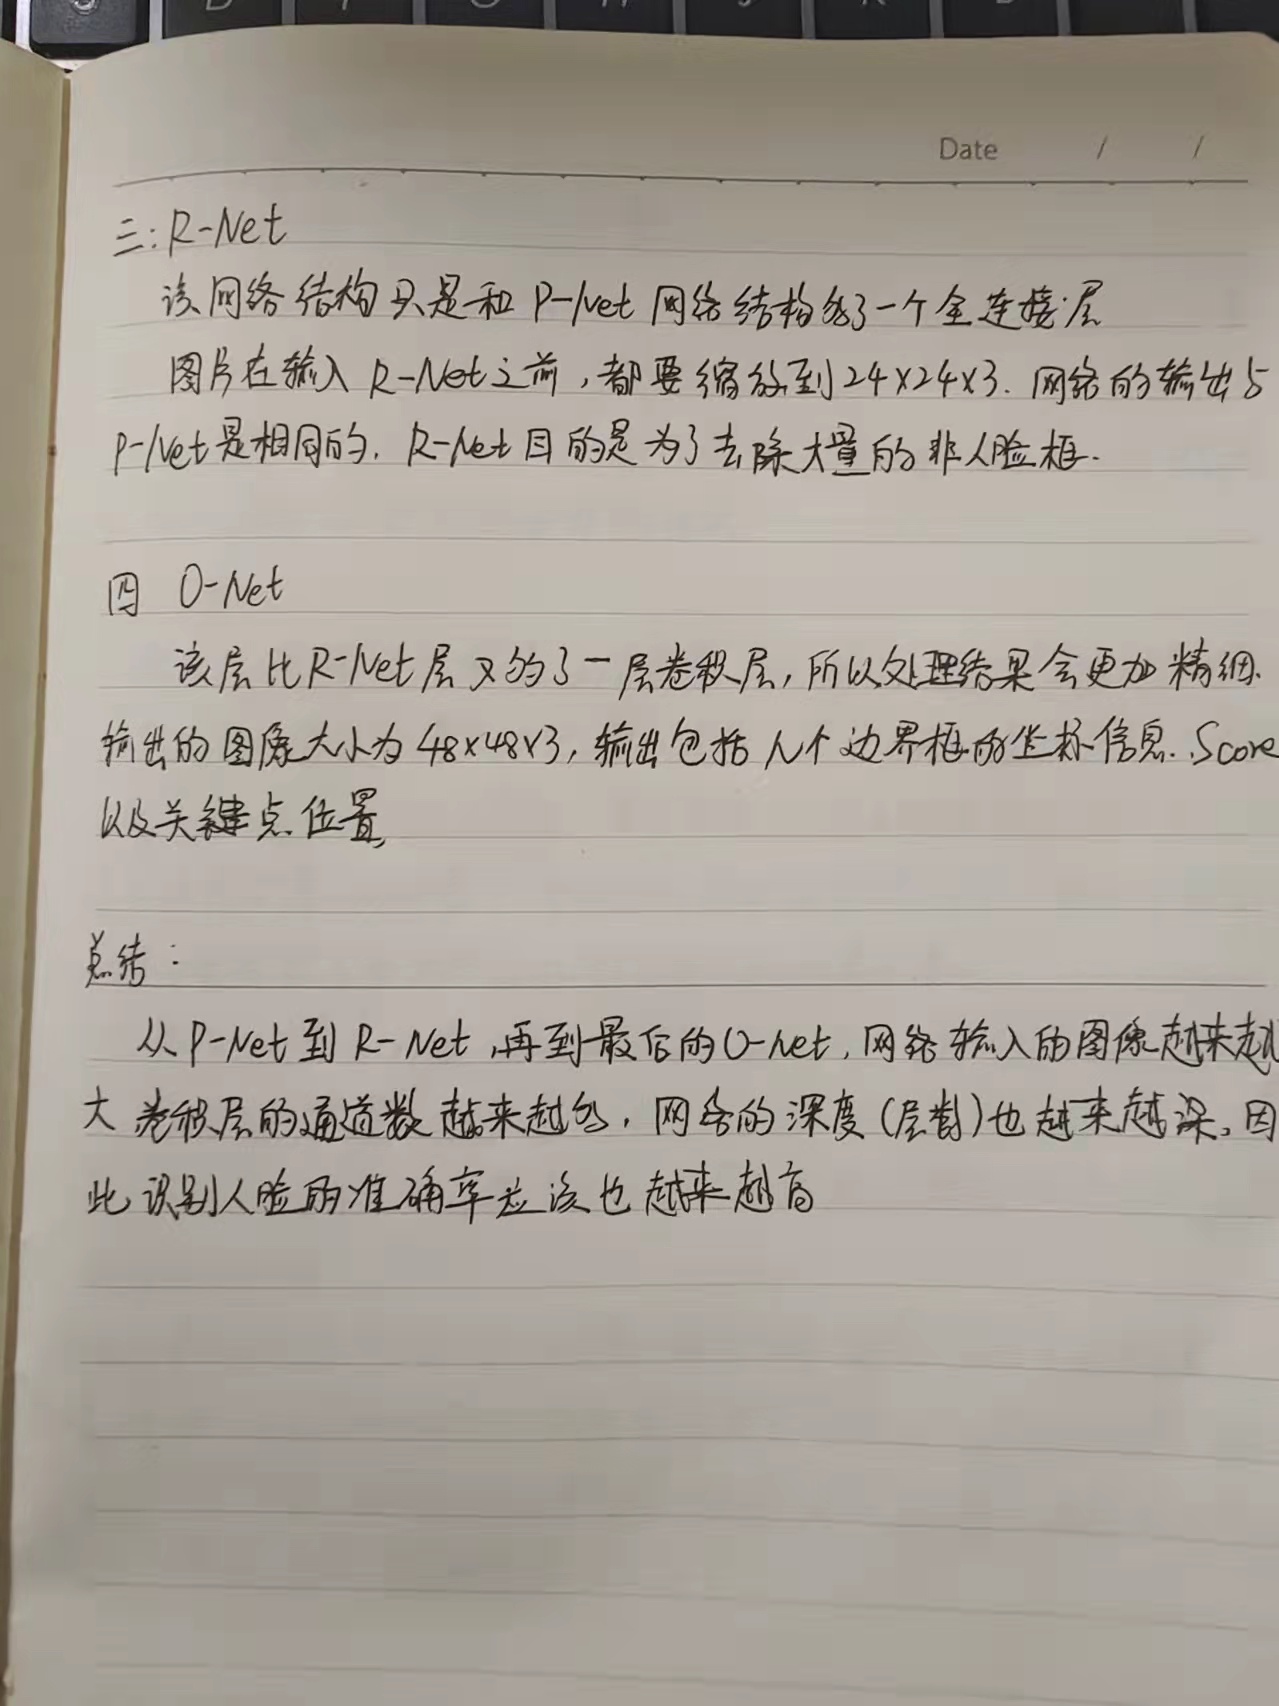 Date / /
三: R-Net
该网络结构只是和P-Net网络结构多了一个全连接层
图片在输入R-Net之前,都要缩放到24×24×3. 网络的输出与
P-Net是相同的. R-Net目的是为了去除大量的非人脸框.
四 O-Net
该层比R-Net层又多了一层卷积层,所以处理结果会更加精细.
输出的图像大小为48×48×3,输出包括N个边界框的坐标信息.Score
以及关键点位置,
总结:
从P-Net到R-Net,再到最后的O-Net,网络输入的图像越来越
大 卷积层的通道数越来越多,网络的深度(层数)也越来越深,因
此识别人脸的准确率应该也越来越高